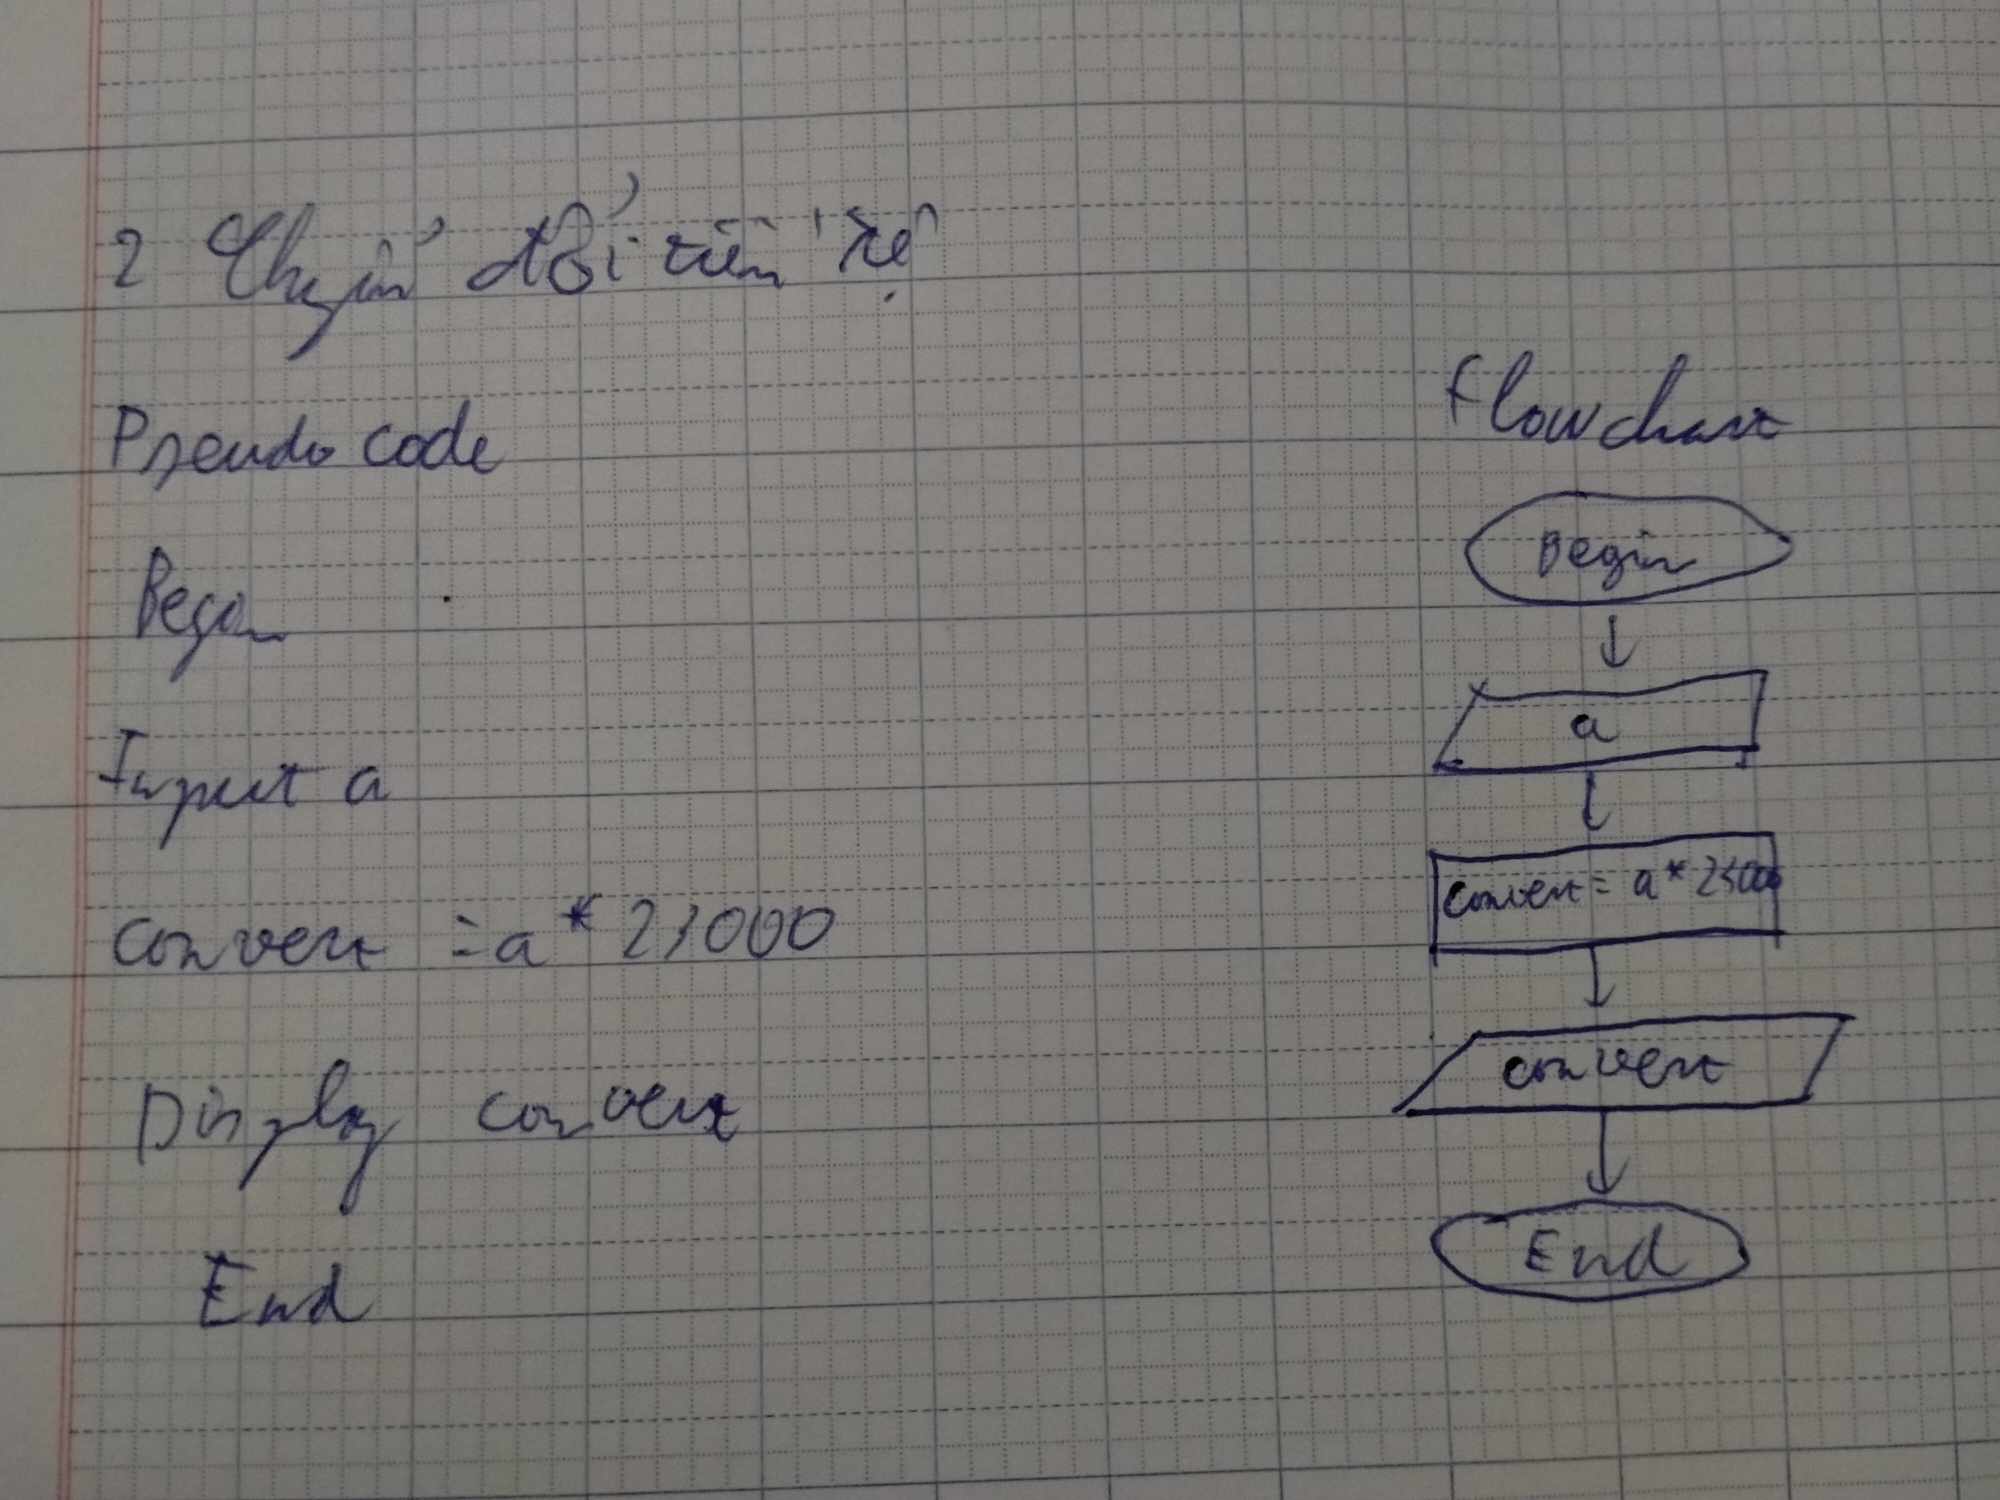 2 Chuyển đổi tiền tệ
Pseudo code
Begin
Input a
Convert = a * 23000
Display convert
End
Flowchart
Begin
a
Convert = a * 23000
convert
End